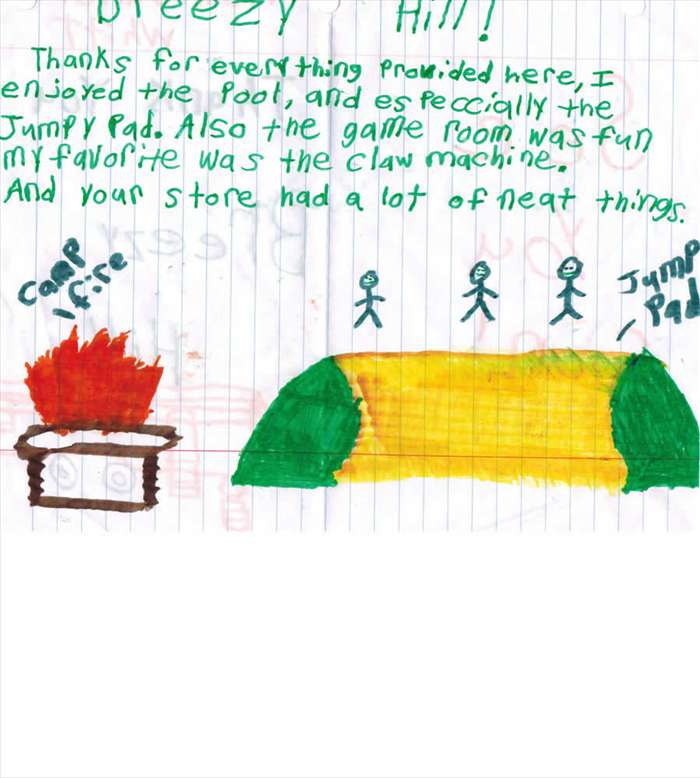 Breezy Hill!
Thanks for everything Provided here, I
enjoyed the Pool, and especcially the
Jumpy Pad. Also the game room was fun
my favorite was the claw machine.
And your store had a lot of neat things.
Camp
fire
Jump
Pad